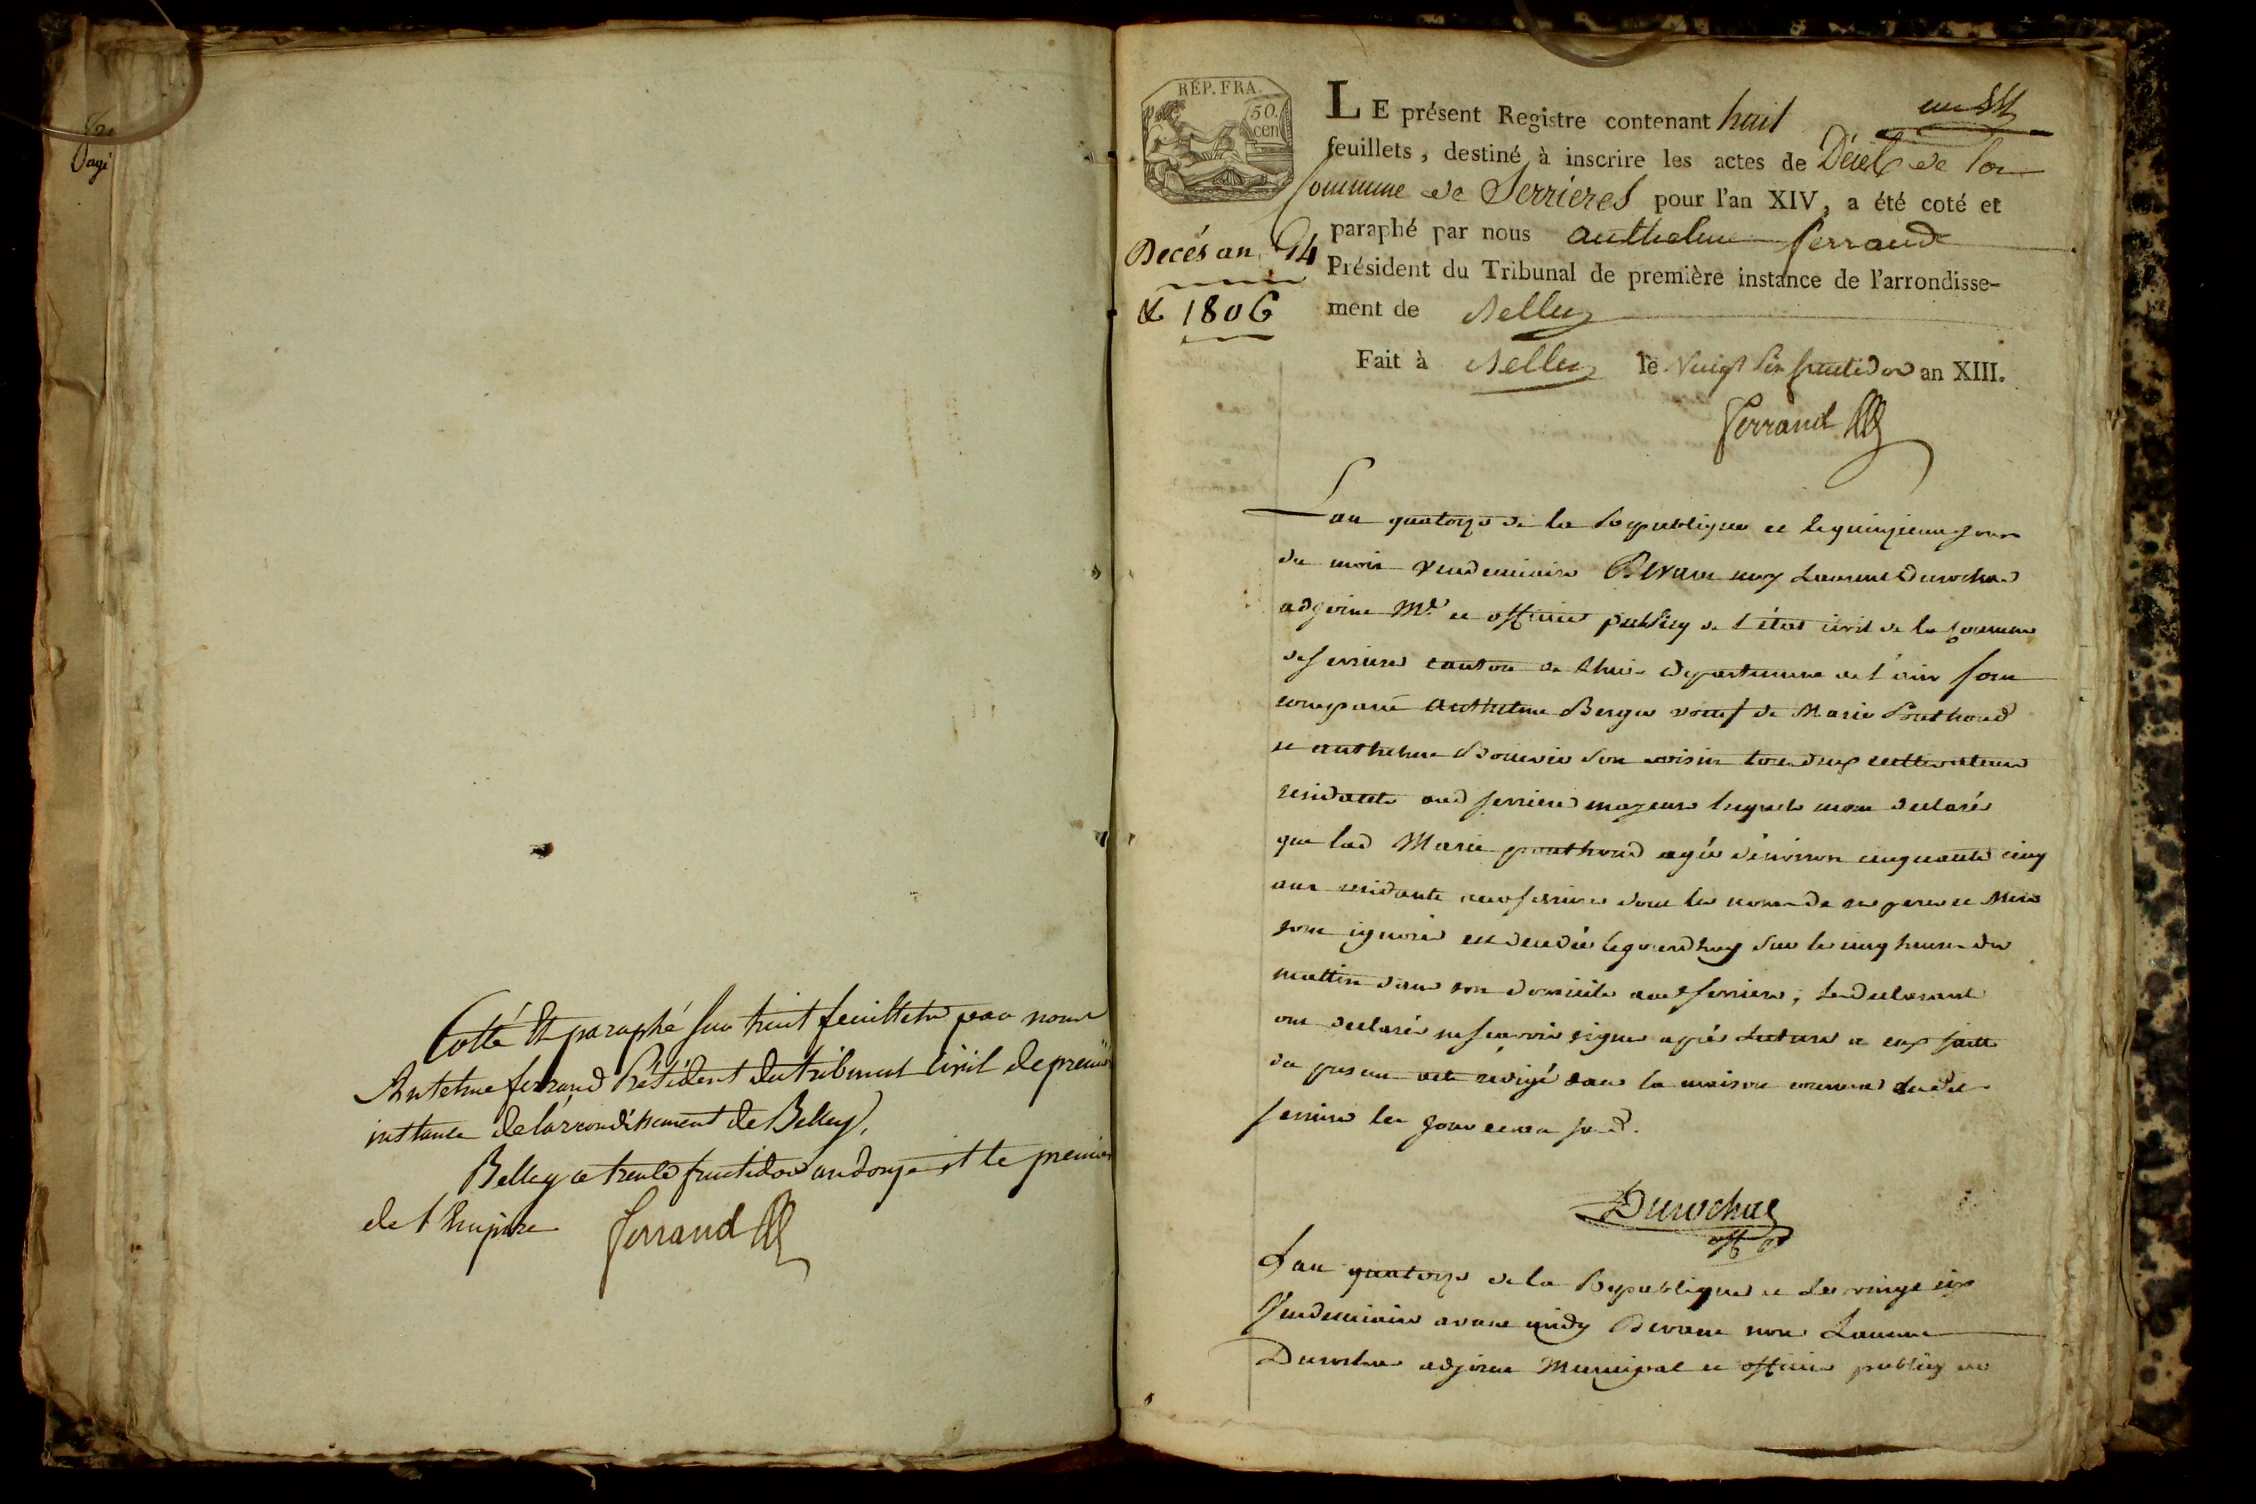 Cotté Et paraphé sur huit feuillets par nous
Antelme ferrand Président du tribunal Civil de premier
instance de l'arrondissement de Belley,
Belley ce trente fructidor an douze et le premier
de l'Empire Ferrand
RÉP. FRA.
50.
cen
Decés an 14
& 1806
LE présent Registre contenant huit
feuillets, destiné à inscrire les actes de Décès de la
Commune de Serrières pour l'an XIV, a été coté et
paraphé par nous anthelme ferrand
Président du Tribunal de première instance de l'arrondisse-
ment de Belley
Fait à Belley le Vingt six fructidor an XIII.
Ferrand
Lan quatorze de la Republique et le quinzieme jour
du mois vendemiaire Devant nous Laurent Durochat
adjoint Mal et officier publicq de l'état civil de la Commune
de serrieres canton de Lhuis departement de l'ain sont
comparu anthelme Berger veuf de Marie Pouthond
et anthelme Bouvier son voisin tous deux cultivateurs
residants aud serrieres majeurs lesquels nous declarés
que lad Marie pouthond agée d'environ cinquante cinq
ans residante aud serrieres dont les noms de ses pere et Mere
sont ignorés est decedée le jourdhuy sur les cinq heures du
mattin dans son domicile aud serrieres; les declarants
ont declarés ne scavoir signer après lecture a eux faitte
du present acte redigé dans la maison commune dudit
serrieres les jour et an sud.
Durochat
off p
Lan quatorze de la Republique et les vingt six
Vendemiaire avant midy Devant nous Laurent
Durochat adjoint Municipal et officier publicq de